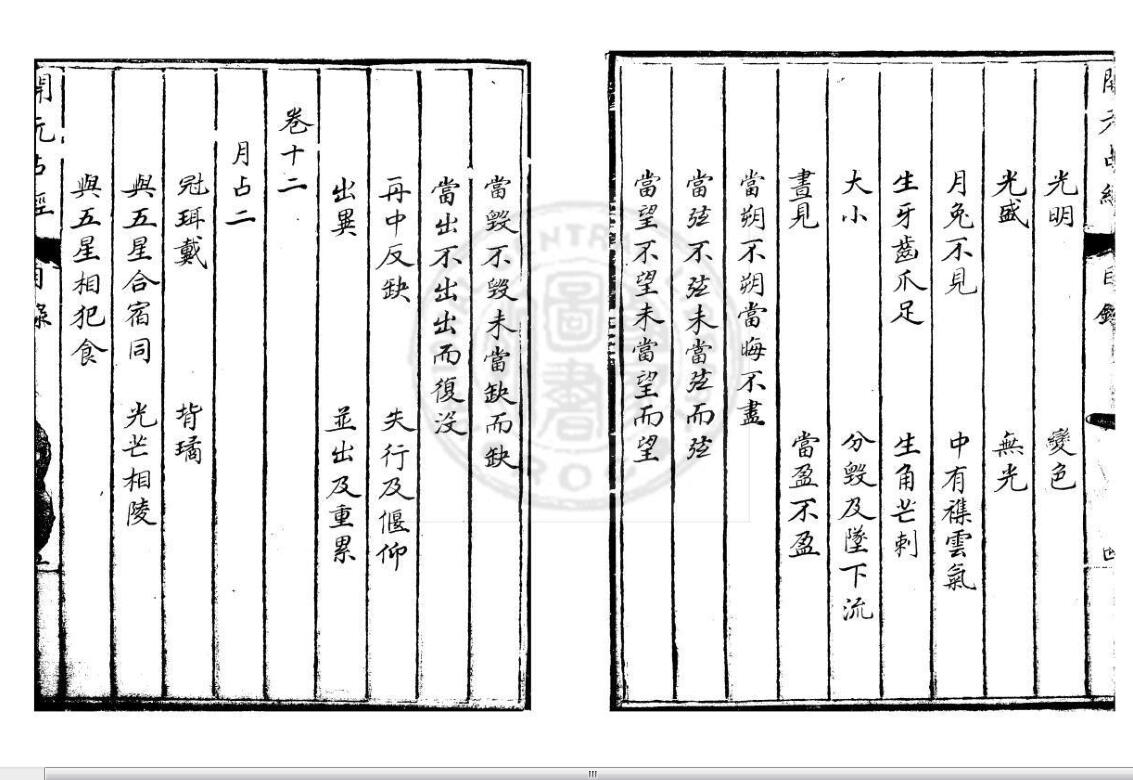 開元占經 目錄 四
光明 變色
光盛 無光
月兔不見 中有襍雲氣
生牙齒爪足 生角芒刺
大小 分毀及墜下流
晝見 當盈不盈
當朔不朔當晦不盡
當弦不弦未當弦而弦
當望不望未當望而望
當毀不毀未當缺而缺
當出不出出而復沒
再中反缺 失行及偃仰
出異 並出及重累
卷十二
月占二
冠珥戴 背璚
與五星合宿同 光芒相陵
與五星相犯食
開元占經 目錄 五